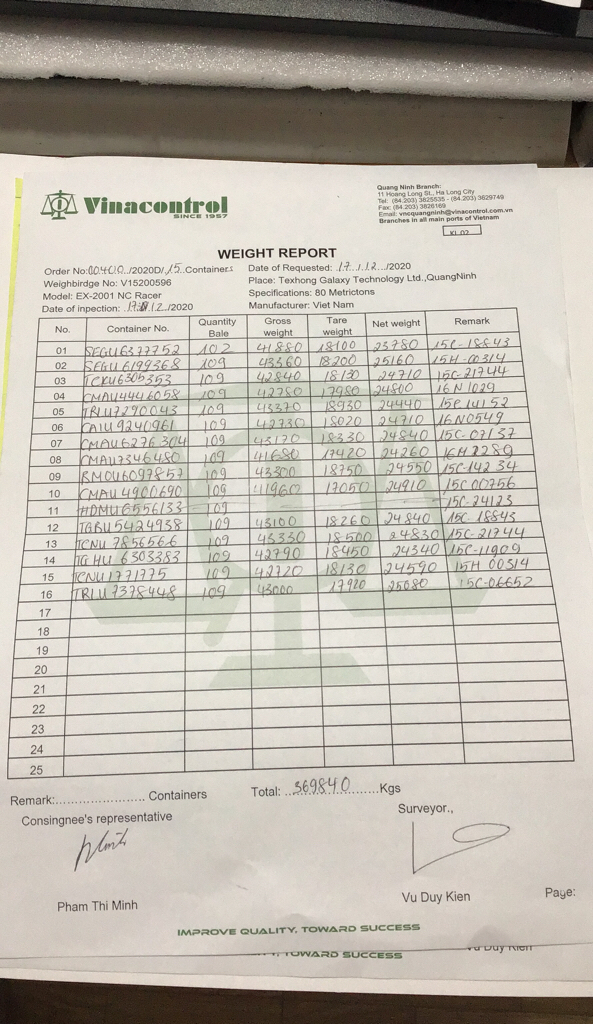 Vinacontrol
SINCE 1957
Quang Ninh Branch:
11 Hoang Long St., Ha Long City
Tel: (84.203) 3825535 - (84.203) 3829749
Fax: (84.203) 3826169
Email: vncquangninh@vinacontrol.com.vn
Branches in all main ports of Vietnam
WEIGHT REPORT
Order No:00400../2020D/.15..Containers Date of Requested: .17../.12.../2020
Weighbirdge No: V15200596 Place: Texhong Galaxy Technology Ltd.,QuangNinh
Model: EX-2001 NC Racer Specifications: 80 Metrictons
Date of inpection: /2020 Manufacturer: Viet Nam
No. Container No. Quantity Bale Gross weight Tare weight Net weight Remark
01 SEGU6377752 102 41880 18100 23780 15C-18843
02 SEGU6199368 109 43360 18200 25160 15H-00314
03 TCKU6305353 109 42840 18130 24710 15C-21744
04 CMAU4446058 109 42780 17980 24800 16N 1029
05 TRLU7290043 109 43370 18930 24440 15P 14152
06 CAIU9240961 109 42730 18020 24710 16N0549
07 CMAU6276304 109 43170 18330 24840 15C-07137
08 CMAU7346480 109 41680 17420 24260 16H 2289
09 RMOU6097857 109 43300 18750 24550 15C-142 34
10 CMAU4900690 109 41960 17050 24910 15C 00756
11 HDMU6556133 109 15C-24123
12 TGBU5424938 109 43100 18260 24840 15C-18843
13 TCNU 7856566 109 43330 18500 24830 15C-21744
14 TGHU 6303383 109 42790 18450 24340 15C-11909
15 TCNU1771775 109 42720 18130 24590 15H 00314
16 TRLU7378448 109 43000 17920 25080 15C-06652
17
18
19
20
21
22
23
24
25
Remark:....................... Containers Total: ..369840.......Kgs
Consingnee's representative Surveyor.,
Pham Thi Minh Vu Duy Kien Page:
IMPROVE QUALITY, TOWARD SUCCESS
TOWARD SUCCESS Vu Duy Kien